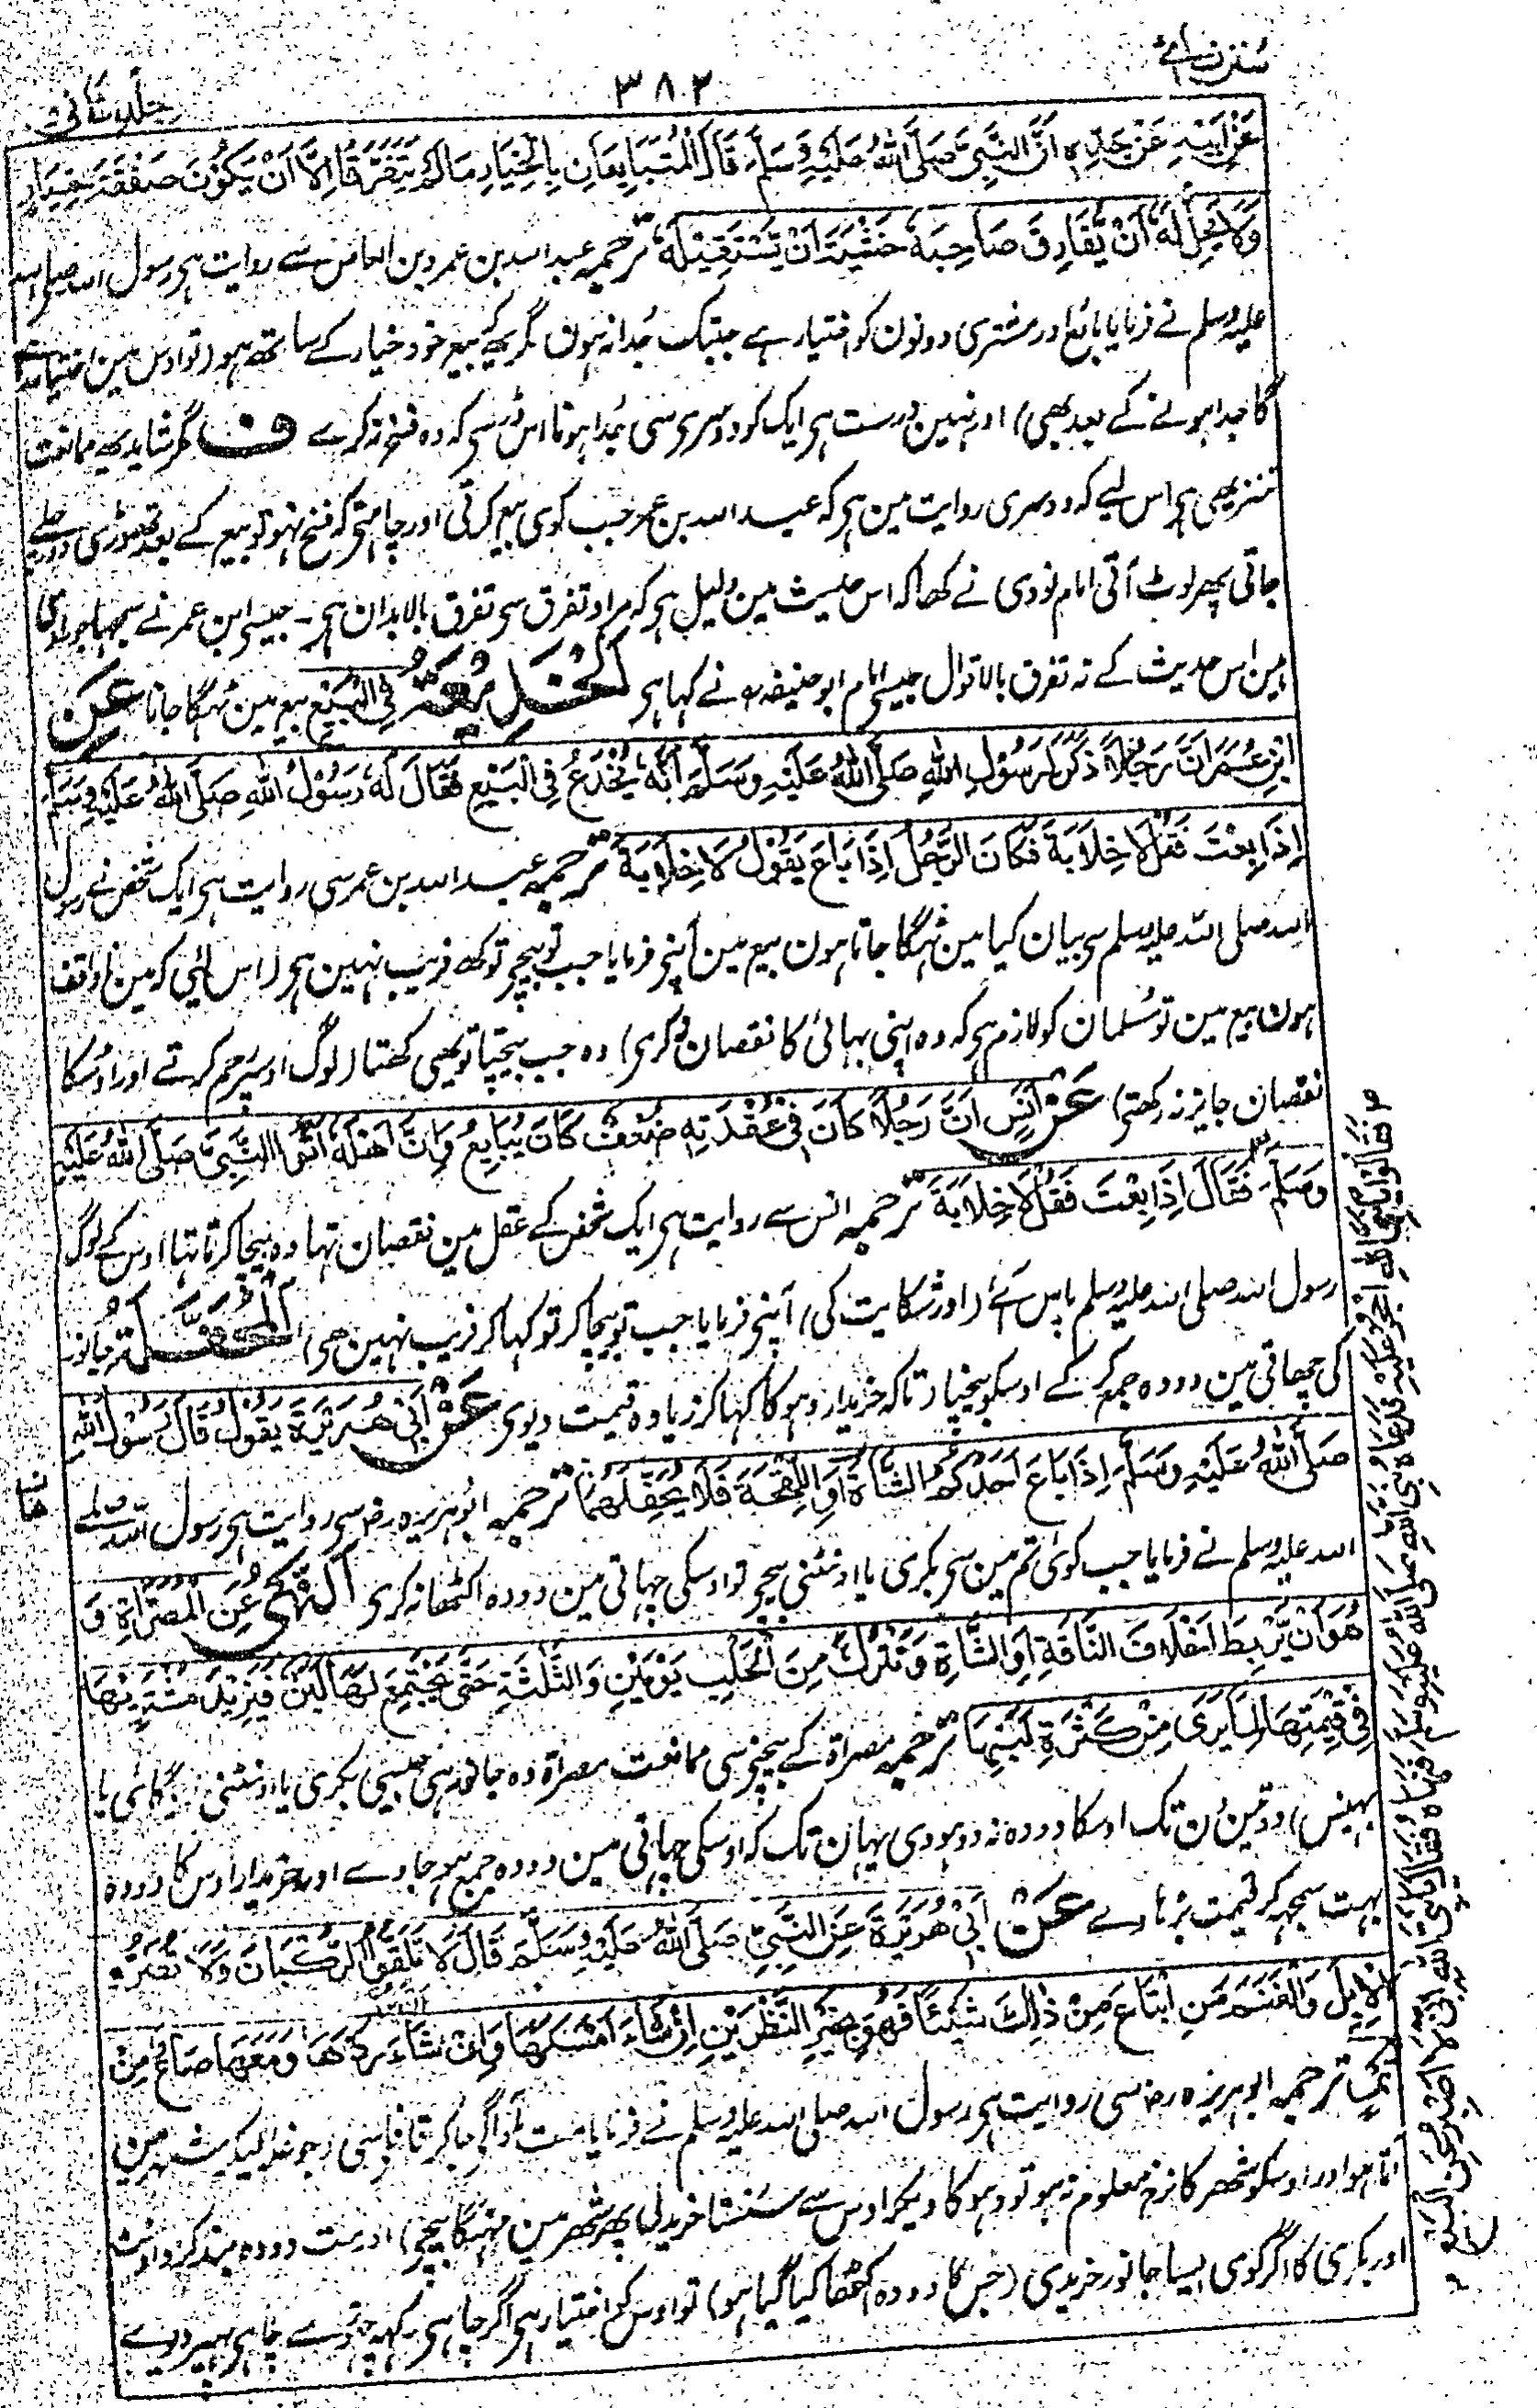 سنن نسائی
۳۸۲
جلد ثانی
عَنْ اَبِيْهِ عَنْ جَدِّهٖ اَنَّ النَّبِيَّ صَلَّى اللّٰهُ عَلَيْهِ وَسَلَّمَ قَالَ الْمُتَبَايِعَانِ بِالْخِيَارِ مَا لَمْ يَتَفَرَّقَا اِلَّا اَنْ يَكُوْنَ صَفْقَةَ خِيَارٍ
وَلَا يَحِلُّ لَهٗ اَنْ يُّفَارِقَ صَاحِبَهٗ خَشْيَةَ اَنْ يَّسْتَقِيْلَهٗ ترجمہ عبد اللہ بن عمرو بن العاص سے روایت ہی رسول اللہ صلی اللہ
علیہ وسلم نے فرمایا بائع اور مشتری دونون کو اختیار ہے جبتک جُدا نہ ہون مگر یہ کہ بیع خود خیار کے ساتھ ہو (تو اوس مین اختیار رہے
گا جدا ہونے کے بعد بھی) اور نہین درست ہی ایک کو دوسری سی جُدا ہونا اس ڈر سی کہ وہ فسخ نہ کرے ف مگر شاید یہ ممانعت
تنزیھی ہی اس لیے کہ دوسری روایت مین ہی کہ عبد اللہ بن عمر جب کوی بیع کرتی اور چاہتی کہ فسخ نہو تو بیع کے بعد تھوڑی دور چلے
جاتی پھر لوٹ آتی امام نووی نے کہا کہ اس حدیث مین دلیل ہی کہ مراد تفرق سی تفرق بالابدان ہی۔ جیسی ابن عمر نے سمجہا جو راوی
ہین اس حدیث کے نہ تفرق بالاقوال جیسی امام ابو حنیفہ رہ نے کہا ہی اَلْخَدِيْعَةُ فِي الْبَيْعِ بیع مین ٹہگا جانا عَنِ
ابْنِ عُمَرَ اَنَّ رَجُلًا ذَكَرَ لِرَسُوْلِ اللّٰهِ صَلَّى اللّٰهُ عَلَيْهِ وَسَلَّمَ اَنَّهٗ يُخْدَعُ فِي الْبَيْعِ فَقَالَ لَهٗ رَسُوْلُ اللّٰهِ صَلَّى اللّٰهُ عَلَيْهِ وَسَلَّمَ
اِذَا بِعْتَ فَقُلْ لَا خِلَابَةَ فَكَانَ الرَّجُلُ اِذَا بَاعَ يَقُوْلُ لَا خِلَابَةَ ترجمہ عبد اللہ بن عمر سی روایت ہی ایک شخص نے رسول
اللہ صلی اللہ علیہ وسلم سی بیان کیا مین ٹہگا جاتا ہون بیع مین آپنی فرمایا جب تو بیچی تو کہ فریب نہین ہی (اس لئی کہ مین ناواقف
ہون بیع مین تو مُسلمان کو لازم ہی کہ وہ اپنی بہائی کا نقصان نہ کری) وہ جب بیچتا تو یہی کہتا (لوگ اوسپر رحم کرتے اور اوسکا
نقصان جایز نہ رکھتی) عَنْ اَنَسٍ اَنَّ رَجُلًا كَانَ فِيْ عُقْدَتِهٖ ضَعْفٌ كَانَ يُبَايِعُ وَاِنَّ اَهْلَهٗ اَتَوُا النَّبِيَّ صَلَّى اللّٰهُ عَلَيْهِ
وَسَلَّمَ فَقَالَ اِذَا بِعْتَ فَقُلْ لَا خِلَابَةَ ترجمہ انس سے روایت ہی ایک شخص کے عقل مین نقصان تہا وہ بیچا کرتا تہا اوس کے لوگ
رسول اللہ صلی اللہ علیہ وسلم پاس آے (اور شکایت کی) آپنی فرمایا جب تو بیچا کر تو کہا کر فریب نہین ہی اَلْمُحَفَّلَةُ جانور
کی چھاتی مین دودہ جمع کر کے اوسکو بیچنا (تاکہ خریدار دہوکا کہا کر زیادہ قیمت دیوی عَنْ اَبِيْ هُرَيْرَةَ يَقُوْلُ قَالَ رَسُوْلُ اللّٰهِ
صَلَّى اللّٰهُ عَلَيْهِ وَسَلَّمَ اِذَا بَاعَ اَحَدُكُمُ الشَّاةَ اَوِ اللِّقْحَةَ فَلَا يُحَفِّلْهَا ترجمہ ابو ہریرہ رضہ سی روایت ہی رسول اللہ صلی
اللہ علیہ وسلم نے فرمایا جب کوی تم مین سی بکری یا اونٹنی بیچی تو اوسکی چہاتی مین دودہ اکٹھا نہ کری اَلنَّهْيُ عَنِ الْمُصَرَّاةِ وَ
هُوَ اَنْ يَّرْبِطَ اَخْلَافَ النَّاقَةِ اَوِ الشَّاةِ وَتُتْرَكَ مِنَ الْحَلْبِ يَوْمَيْنِ وَالثَّلٰثَةَ حَتّٰى يَجْتَمِعَ لَهَا لَبَنٌ فَيَزِيْدَ مُشْتَرِيْهَا
فِيْ قِيْمَتِهَا لِمَا يَرٰى مِنْ كَثْرَةِ لَبَنِهَا ترجمہ مصراۃ کے بیچنی سی ممانعت مصراۃ وہ جانور ہی جیسی بکری یا اونٹنی (یا گائی یا
بہینس) دو تین دن تک اوسکا دودہ نہ دوہوی یہان تک کہ اوسکی چہاتی مین دودہ جمع ہو جاوے اور خریدار اوس کا دودہ
بہت سمجہ کر قیمت بڑہادے عَنْ اَبِيْ هُرَيْرَةَ عَنِ النَّبِيِّ صَلَّى اللّٰهُ عَلَيْهِ وَسَلَّمَ قَالَ لَا تَلَقَّوُا الرُّكْبَانَ وَلَا تُصَرُّوا
الْاِبِلَ وَالْغَنَمَ مَنِ ابْتَاعَ مِنْ ذٰلِكَ شَيْئًا فَهُوَ بِخَيْرِ النَّظَرَيْنِ اِنْ شَاءَ اَمْسَكَهَا وَاِنْ شَاءَ رَدَّهَا وَمَعَهَا صَاعٌ مِنْ
تَمْرٍ ترجمہ ابو ہریرہ رضہ سی روایت ہی رسول اللہ صلی اللہ علیہ وسلم نے فرمایا مت ملو آگی جا کر قافلہ سی (جو غلہ لیکر شہر مین
آتا ہو اور اوسکو شہر کا نرخ معلوم نہ ہو تو دہوکا دیکر اوس سے سستا خرید لی پھر شہر مین مہنگا بیچی) اور مت دودہ بند کرو اونٹ
اور بکری کا اگر کوی ایسا جانور خریدی (جس کا دودہ اکٹھا کیا گیا ہو) تو اوس کو اختیار ہی اگر چاہی رکہہ چہوڑے چاہی پھیر دیوے
فَقَالُوْا يَا نَبِيَّ اللّٰهِ احْجُرْ عَلَيْهِ فَدَعَاهُ نَبِيُّ اللّٰهِ صَلَّى اللّٰهُ عَلَيْهِ وَسَلَّمَ فَنَهَاهُ فَقَالَ يَا نَبِيَّ اللّٰهِ اِنِّيْ لَا اَصْبِرُ عَنِ الْبَيْعِ